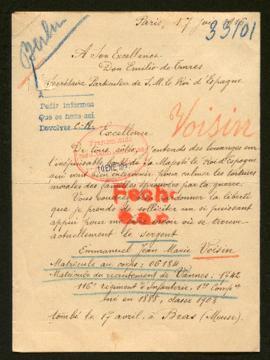 Paris, 17
33701
Berlin
A Son Excellence
Don Emilio de Torres
Secrétaire Particulier de S. M. le Roi d'Espagne
A
Pedir informes
Que se haga así
Devolver
Excellence
Voisin
De tous côtés, j'entends des louanges sur
l'inépuisable bonté de Sa Majesté le Roi d'Espagne
qui veut bien intervenir pour calmer les tortures
morales des familles éprouvées par la guerre.
donner la liberté
que je prends de solliciter un si puissant
appui pour savoir où se trouve
actuellement le sergent
Fecho
Emmanuel Jean Marie Voisin
Matricule au corps: 06184
Matricule du recrutement de Vannes: 1742
116e régiment d'Infanterie, 1re Compie
né en 1888, classe 1908
tombé le 17 avril, à Bras (Meuse).